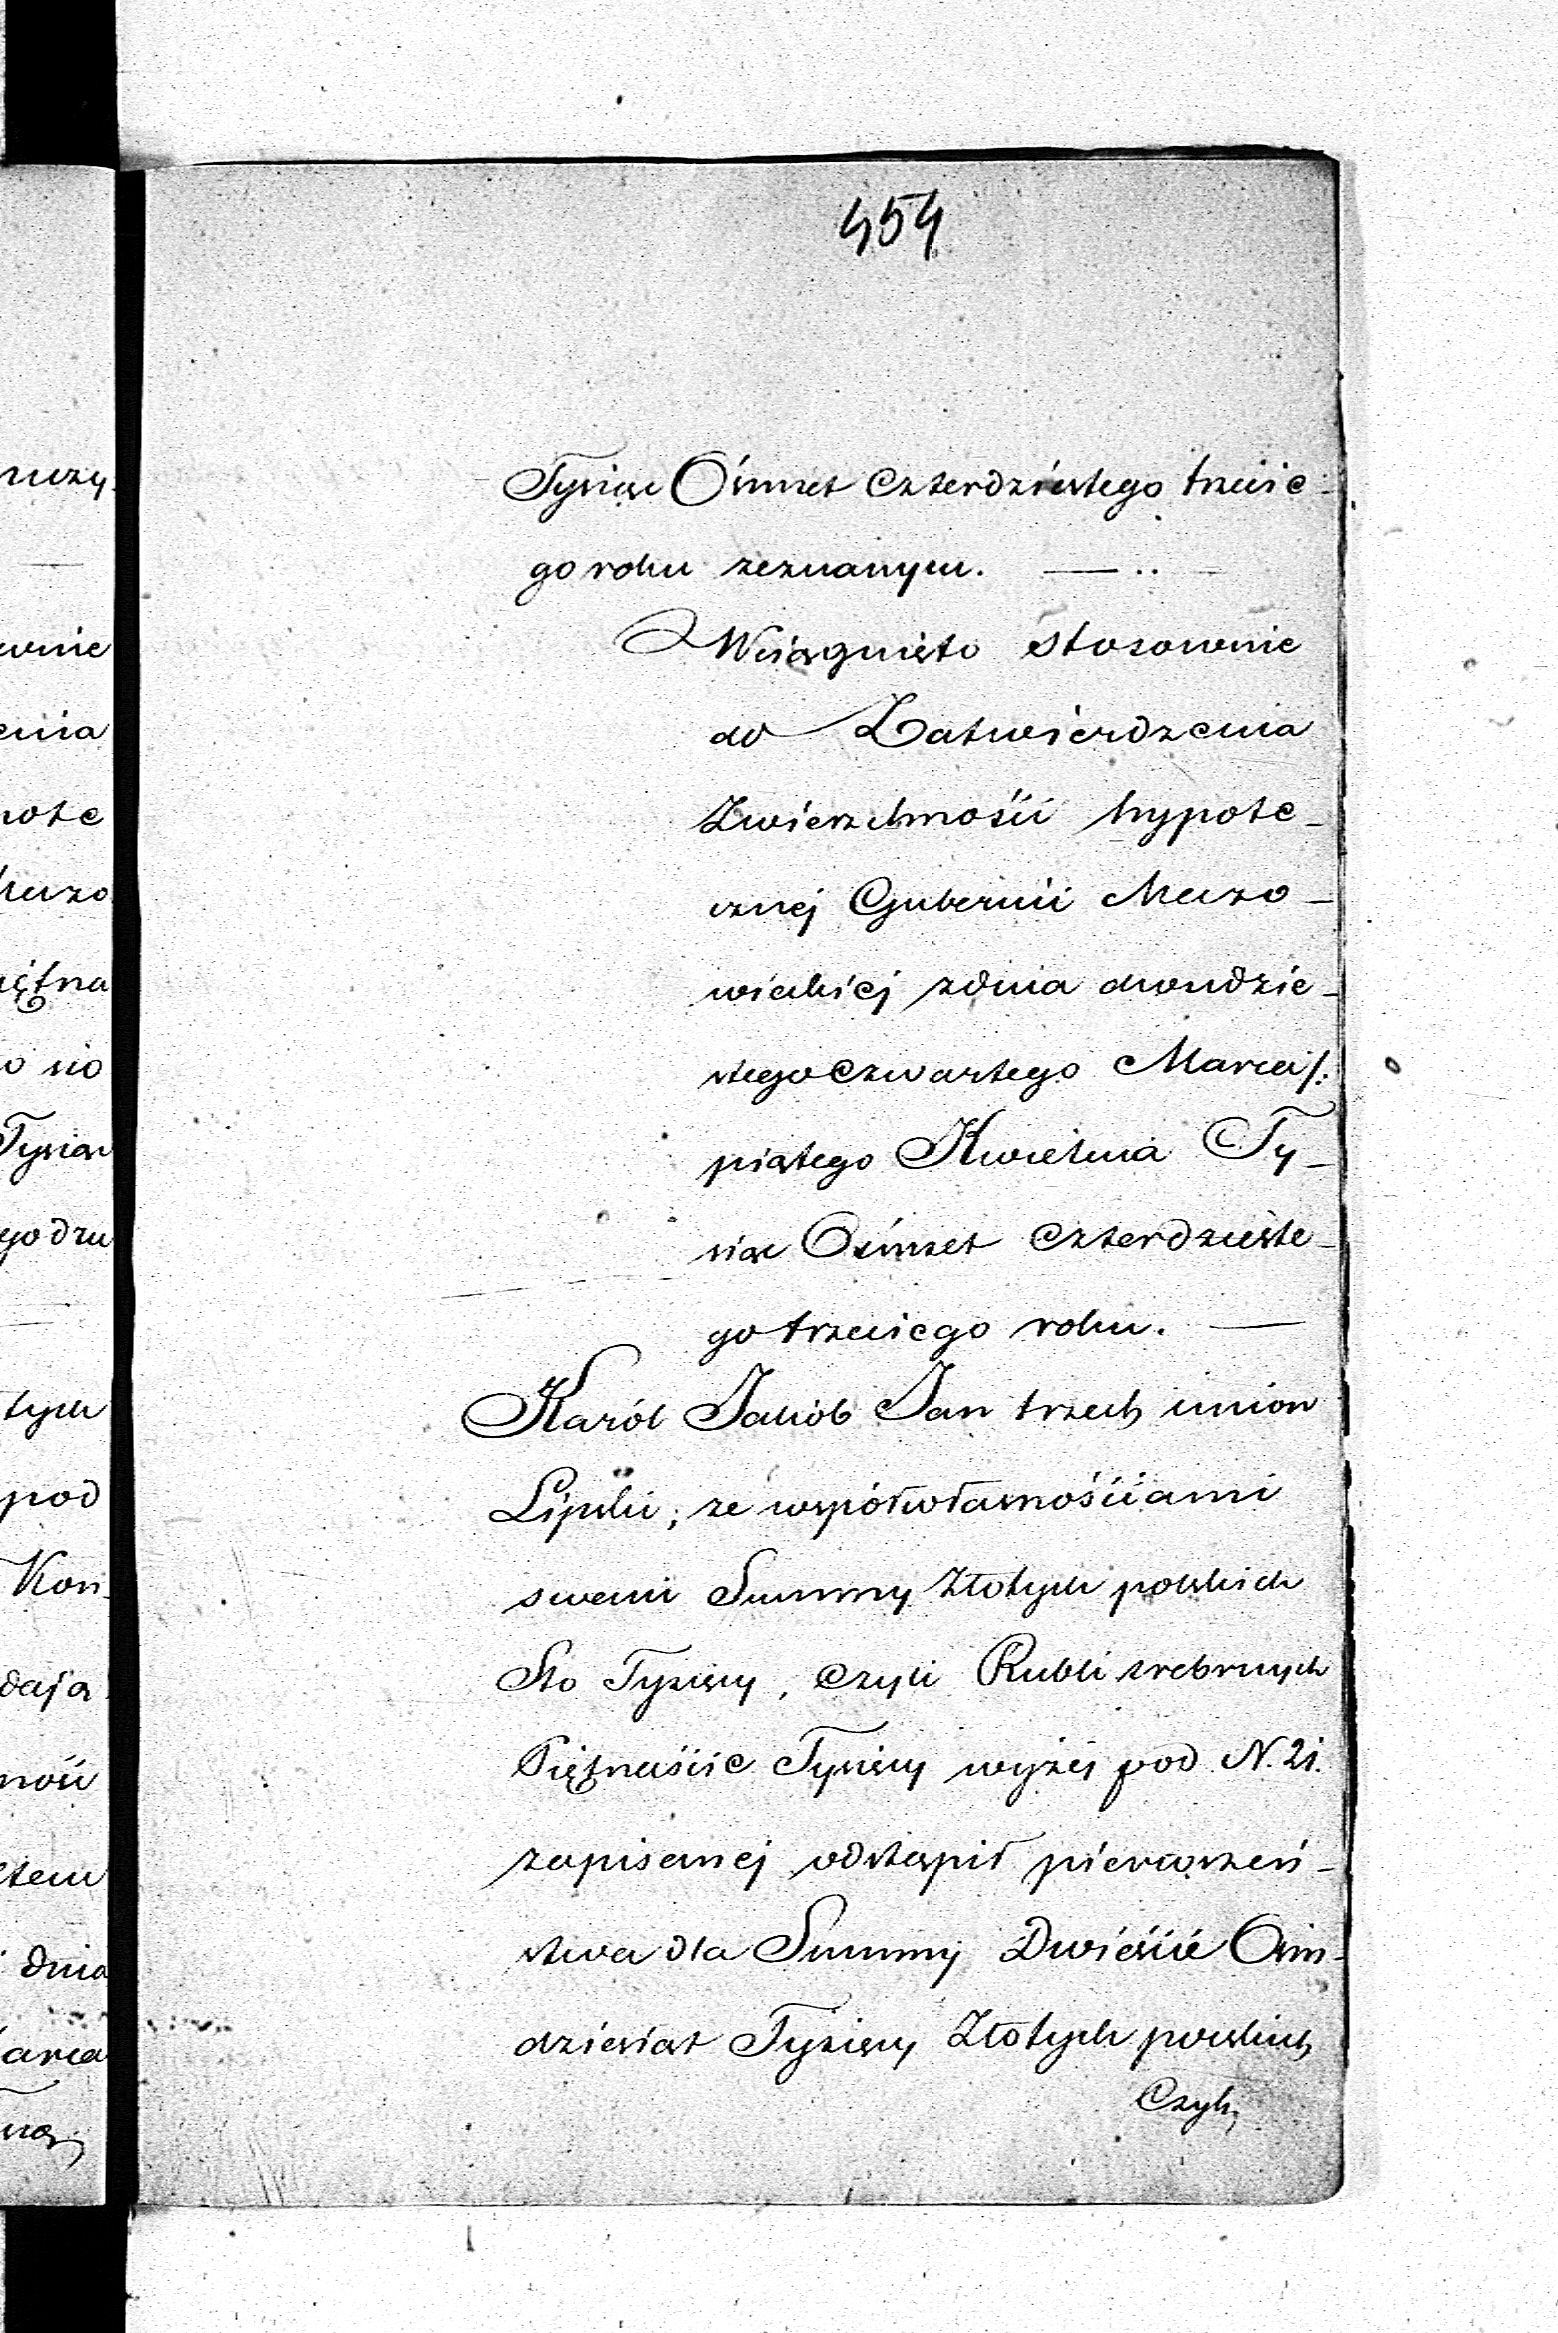 454
Tysiąc Ośmset Czterdziestego trzecie-
go roku zeznanym. —
Wciągnięto stosownie
do Zatwierdzenia
Zwierzchności hypote-
cznej Gubernii Mazo-
wieckiej z dnia dwudzie-
stego Czwartego Marca /:
piątego Kwietnia Ty-
siąc Ośmset Czterdzieste-
go trzeciego roku. —
Karól Jakób Jan trzech imion
Lipski, ze współwłasnościami
swemi Summy Złotych polskich
Sto Tysięcy, czyli Rubli srebrnych
Piętnaście Tysięcy wyżej pod N. 21.
zapisanej odstąpił pierwszeń-
stwa dla Summy Dwieście Ośm-
dziesiąt Tysięcy Złotych polskich
Czyli